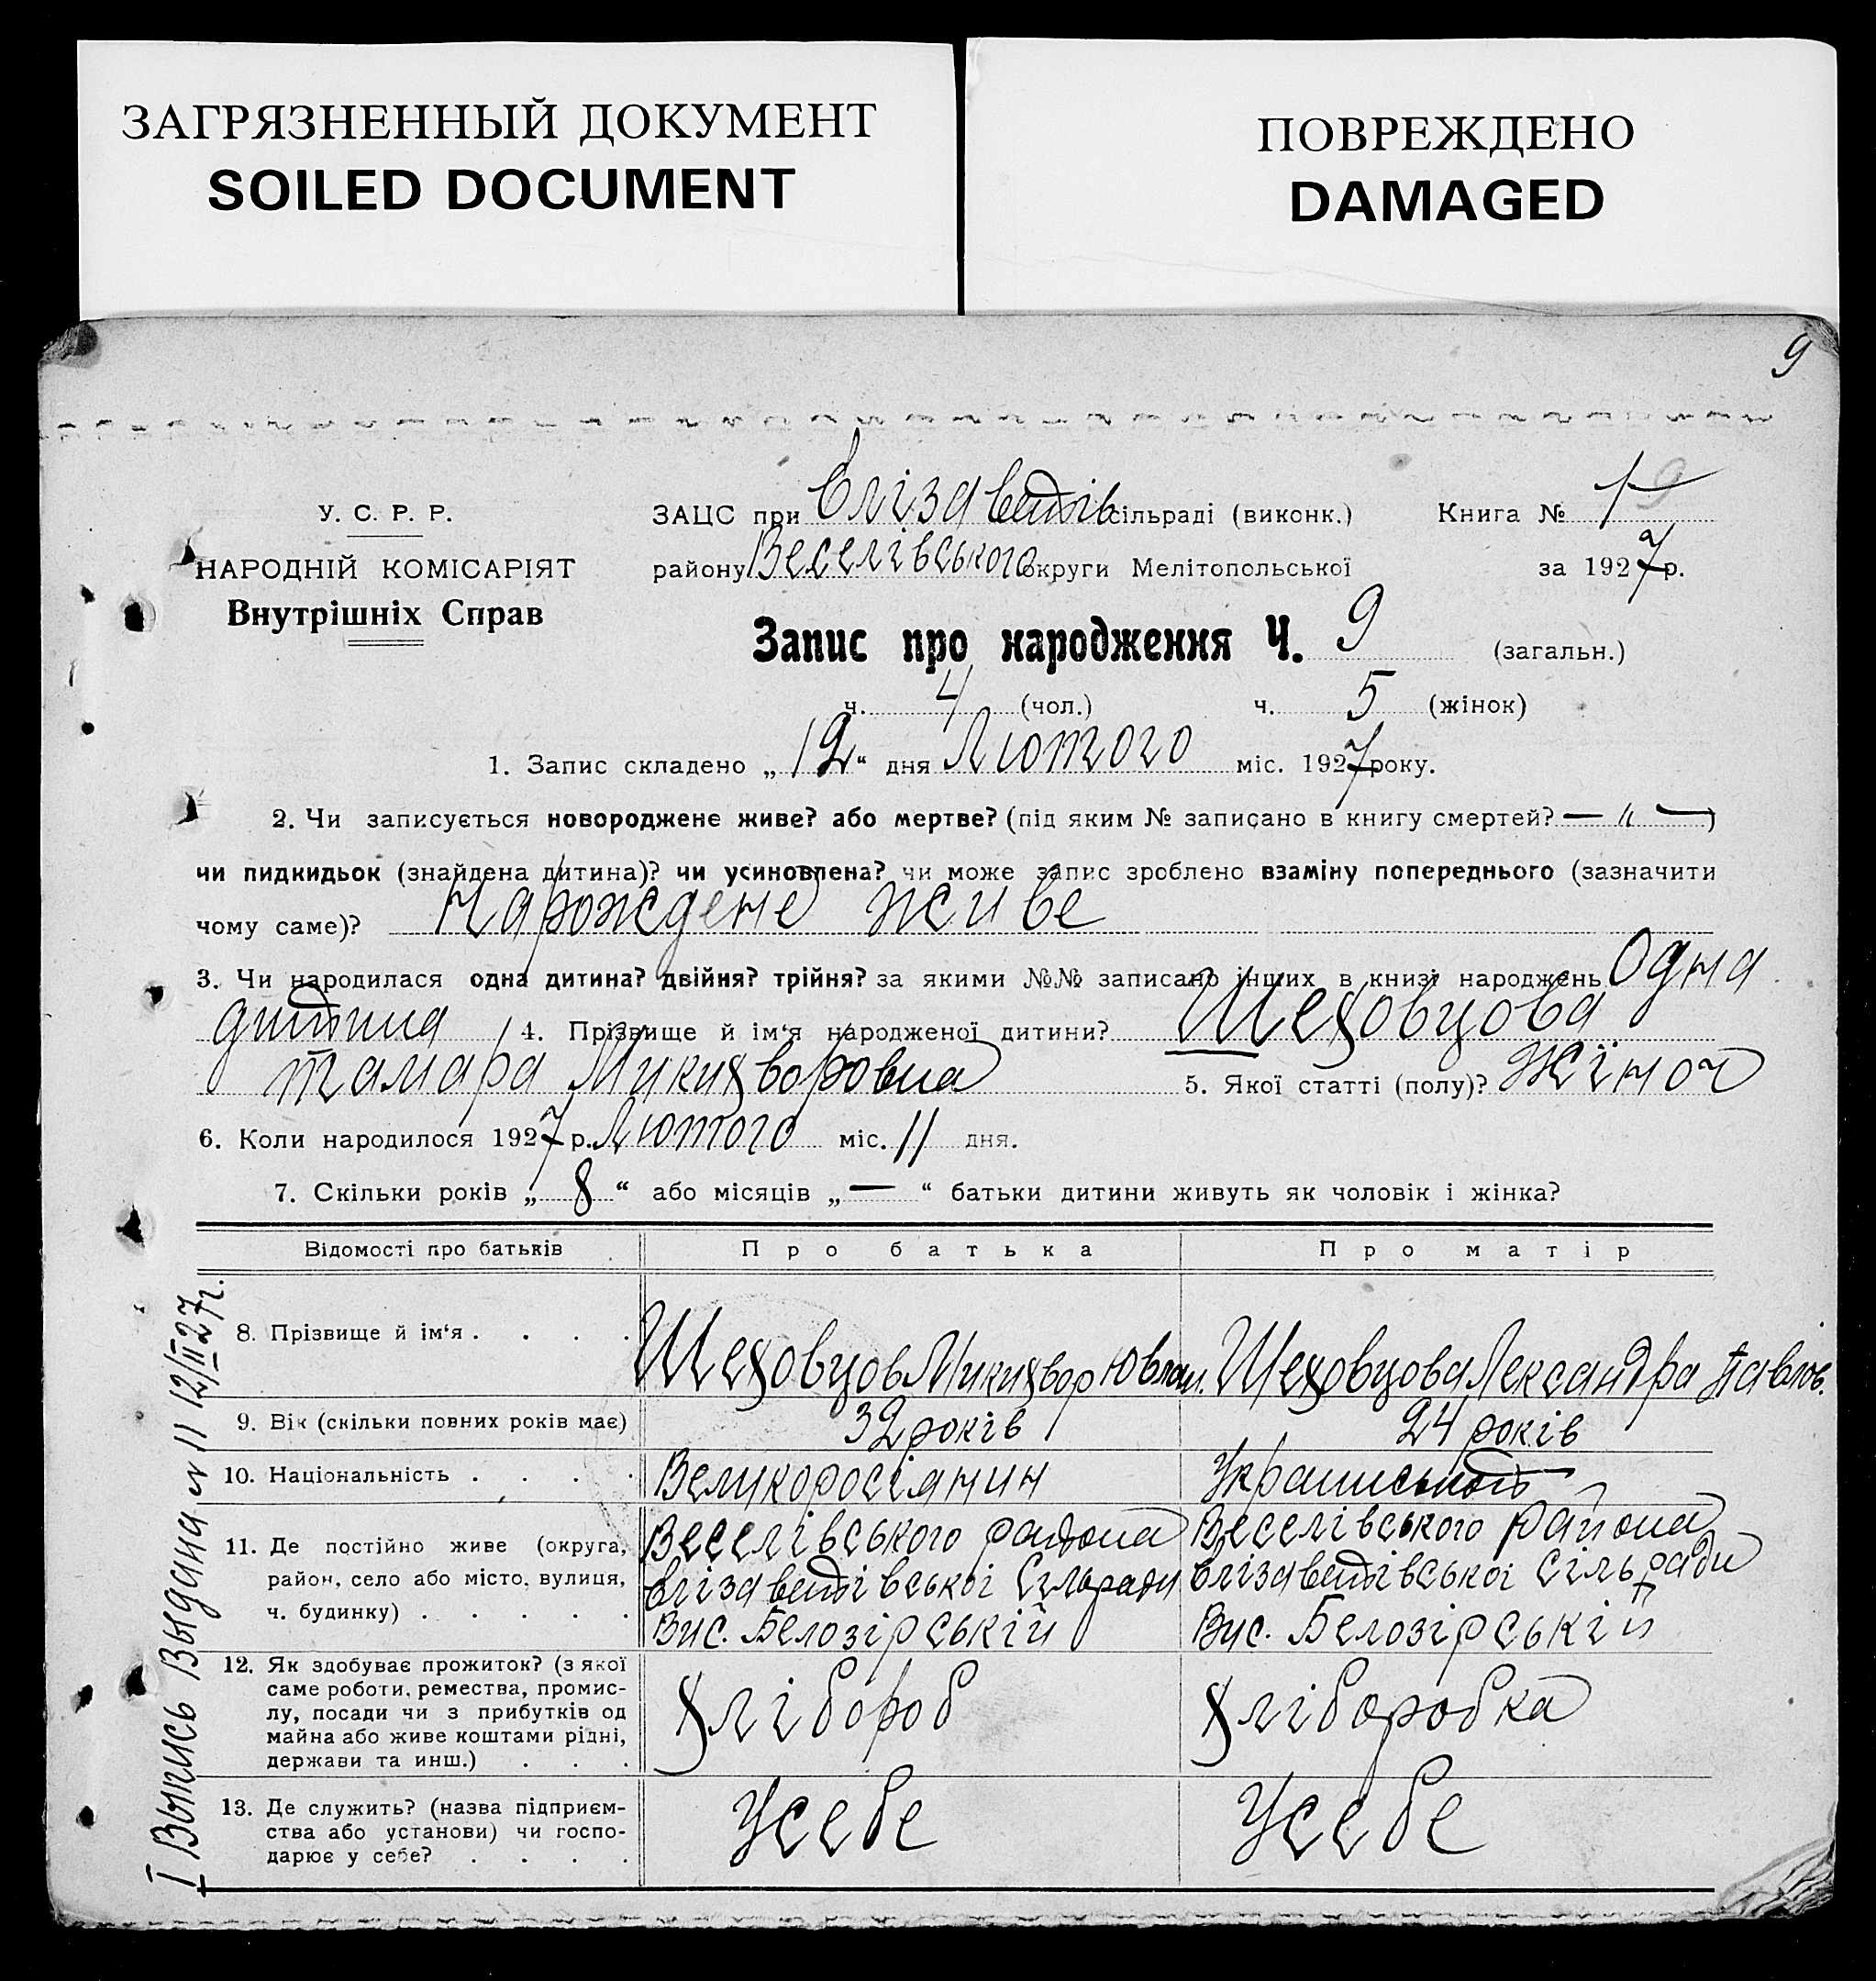 ЗАГРЯЗНЕННЫЙ ДОКУМЕНТ
SOILED DOCUMENT
ПОВРЕЖДЕНО
DAMAGED
9
У. С. Р. Р.
НАРОДНІЙ КОМІСАРІЯТ
Внутрішніх Справ
ЗАЦС при Єлізаветів сільраді (виконк.)
району Веселівського округи Мелітопольської
Книга № 1 9
за 1927 р.
Запис про народження Ч. 9 (загальн.)
ч. 4 (чол.) ч. 5 (жінок)
1. Запис складено „ 12 “ дня Лютого міс. 1927 року.
2. Чи записується новороджене живе? або мертве? (під яким № записано в книгу смертей? — „ —)
чи пидкидьок (знайдена дитина)? чи усиновлена? чи може запис зроблено взаміну попереднього (зазначити
чому саме)? Нарождене живе
3. Чи народилася одна дитина? двійня? трійня? за якими №№ записано інших в книзі народжень Одна
дитина 4. Прізвище й ім‘я народженої дитини? Шеховцова
Тамара Микихворовна 5. Якої статті (полу)? Жіноч
6. Коли народилося 1927 р. Лютого міс. 11 дня.
7. Скільки років „ 8 “ або місяців „ — “ батьки дитини живуть як чоловік і жінка?
Відомості про батьків Про батька Про матір
8. Прізвище й ім‘я . . . . Шеховцов Микихвор Шеховцова Лександра Павлов.
9. Вік (скільки повних років має) 32 років 24 років
10. Національність . . . . Великоросіянин
11. Де постійно живе (округа, Веселівського района Веселівського района
район, село або місто, вулиця, Єлізаветівської Сільради Єлізаветівської Сільради
ч. будинку) . . . . . Вис. Белозірський Вис. Белозірський
12. Як здобуває прожиток? (з якої
саме роботи, ремества, промис-
лу, посади чи з прибутків од Хлібороб Хліборобка
майна або живе коштами рідні,
держави та инш.) . . .
13. Де служить? (назва підприєм-
ства або установи) чи госпо- Усебе Усебе
дарює у себе? . . . .
I Выпись Выдана № 11 12/II 27 г.